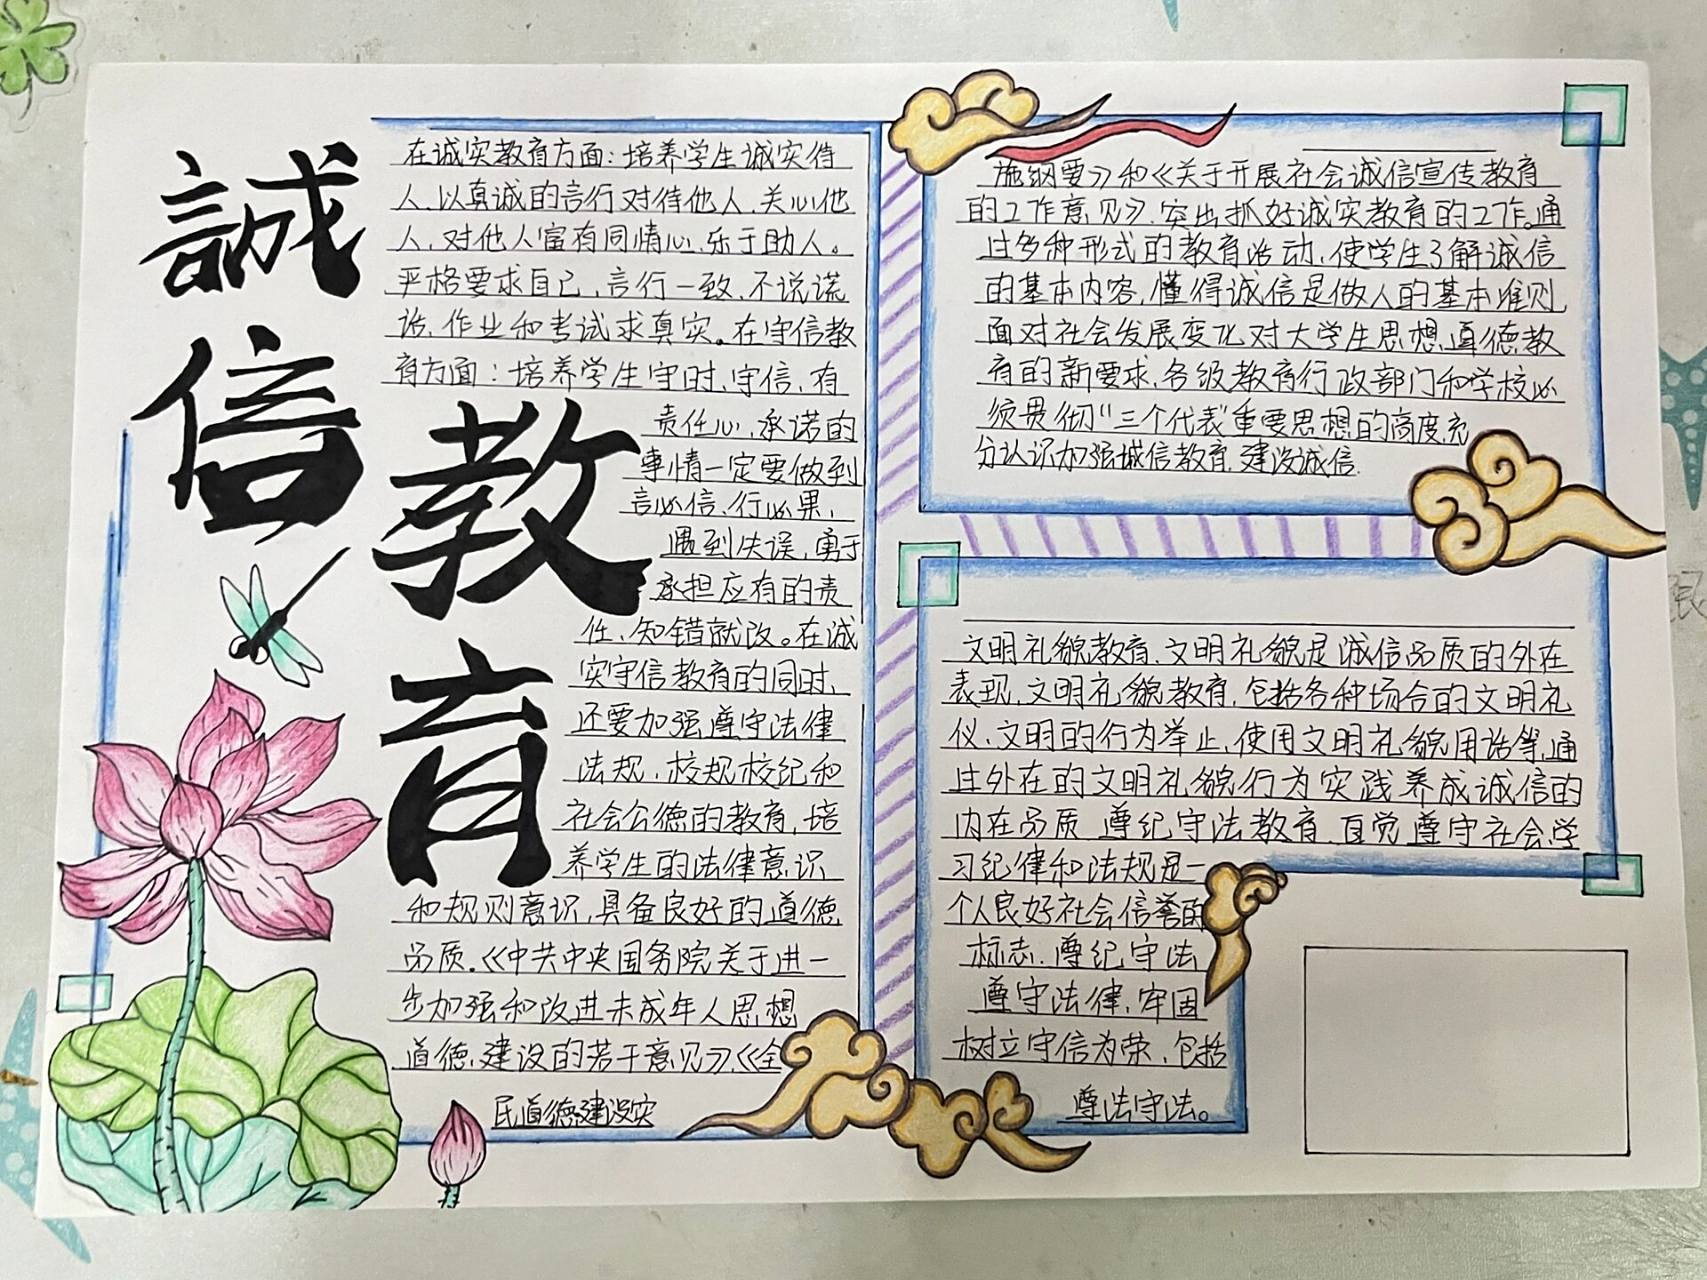 誠信
教育
在诚实教育方面：培养学生诚实待
人，以真诚的言行对待他人、关心他
人，对他人富有同情心、乐于助人。
严格要求自己，言行一致，不说谎
话，作业和考试求真实。在守信教
育方面：培养学生守时、守信、有
责任心，承诺的
事情一定要做到
言必信、行必果，
遇到失误，勇于
承担应有的责
任，知错就改。在诚
实守信教育的同时，
还要加强遵守法律
法规、校规校纪和
社会公德的教育，培
养学生的法律意识
和规则意识，具备良好的道德
品质。《中共中央国务院关于进一
步加强和改进未成年人思想
道德，建设的若干意见》、《全
民道德建设实
施纲要》和《关于开展社会诚信宣传教育
的工作意见》，突出抓好诚实教育的工作。通
过多种形式的教育活动，使学生了解诚信
的基本内容，懂得诚信是做人的基本准则
面对社会发展变化对大学生思想道德教
育的新要求，各级教育行政部门和学校必
须贯彻“三个代表”重要思想的高度，充
分认识加强诚信教育，建设诚信.
文明礼貌教育，文明礼貌是诚信品质的外在
表现，文明礼貌教育，包括各种场合的文明礼
仪、文明的行为举止，使用文明礼貌用语等，通
过外在的文明礼貌行为实践养成诚信的
内在品质 遵纪守法教育，自觉遵守社会、学
习纪律和法规是一
个人良好社会信誉的
标志，遵纪守法
遵守法律，牢固
树立守信为荣，包括
遵法守法。